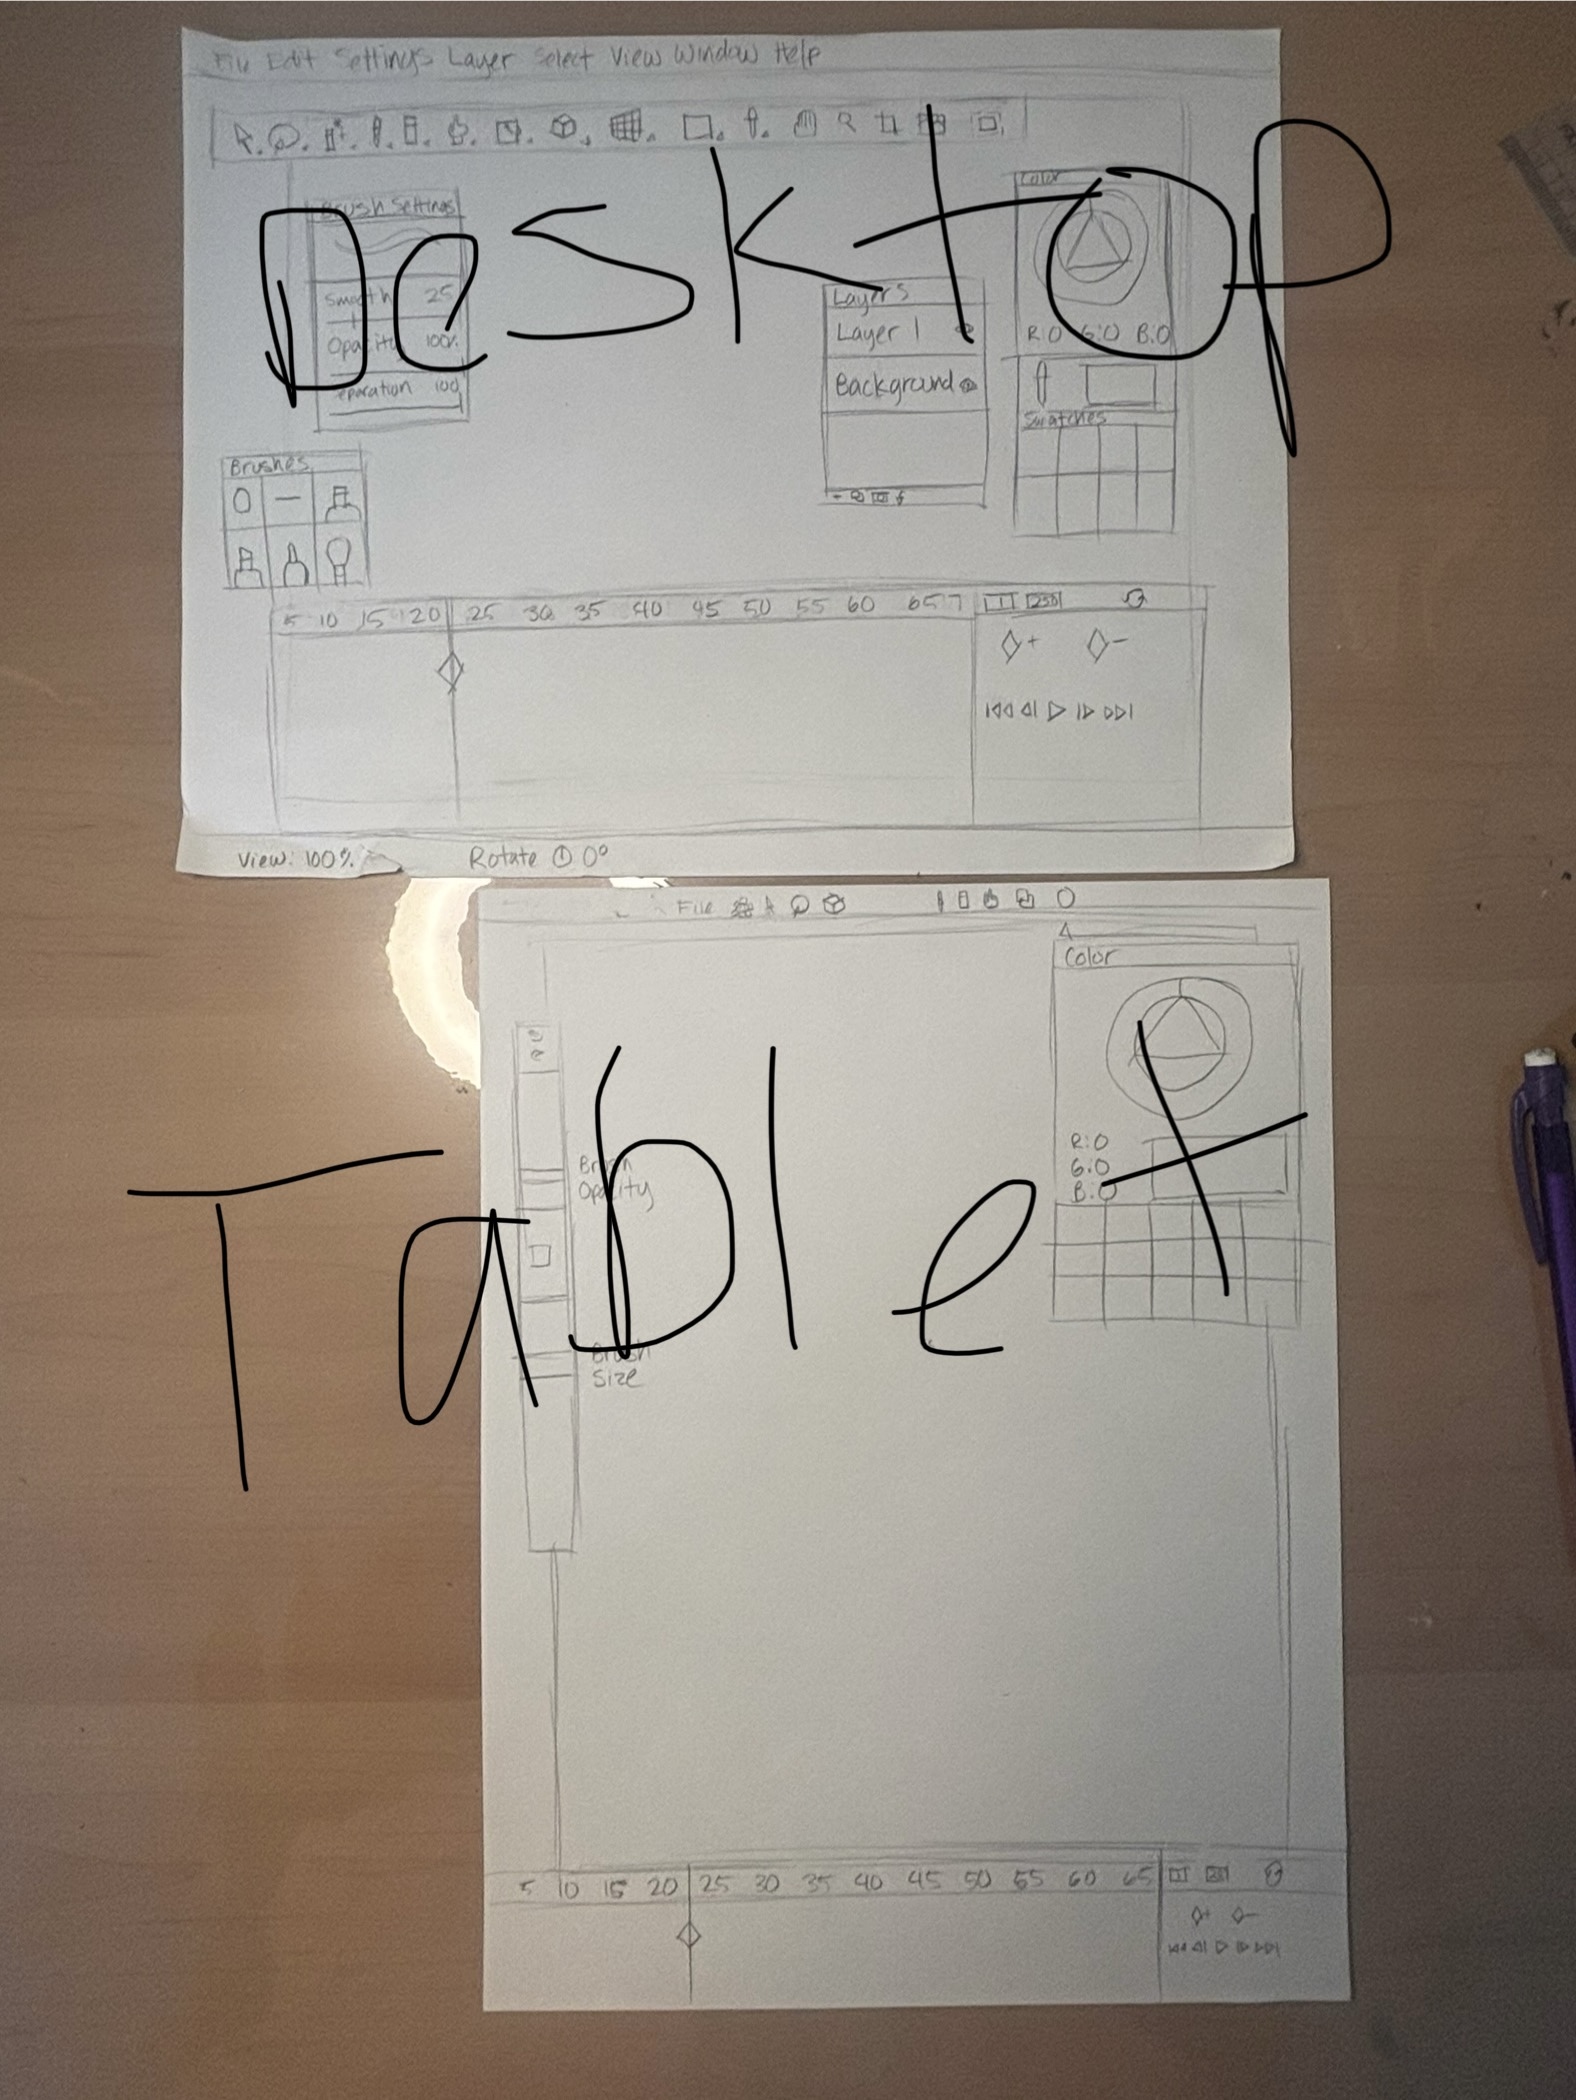 File Edit Settings Layer Select View Window Help
Desktop
Brush Settings
Smooth 25
Opacity 100%
eparation 100
Layers
Layer 1
Background
Color
R:0 G:0 B:0
Swatches
Brushes
5 10 15 20 25 30 35 40 45 50 55 60 65
View: 100% Rotate 0°
File
Color
Tablet
Brush
Opacity
R:0
G:0
B:0
Brush
Size
5 10 15 20 25 30 35 40 45 50 55 60 65